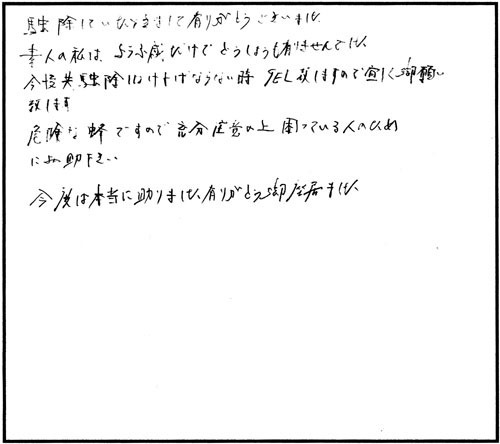 駆除していただきまして有りがとうございました
素人の私は、ようふ慮だけでどうしようも有りませんでした
今後共駆除しなければならない時 TEL致しますので宜しく御願い
致します
危険な蜂ですので充分注意の上 困っている人のため
にお助下さい
今度は本当に助りました、有りがとう御座居ました